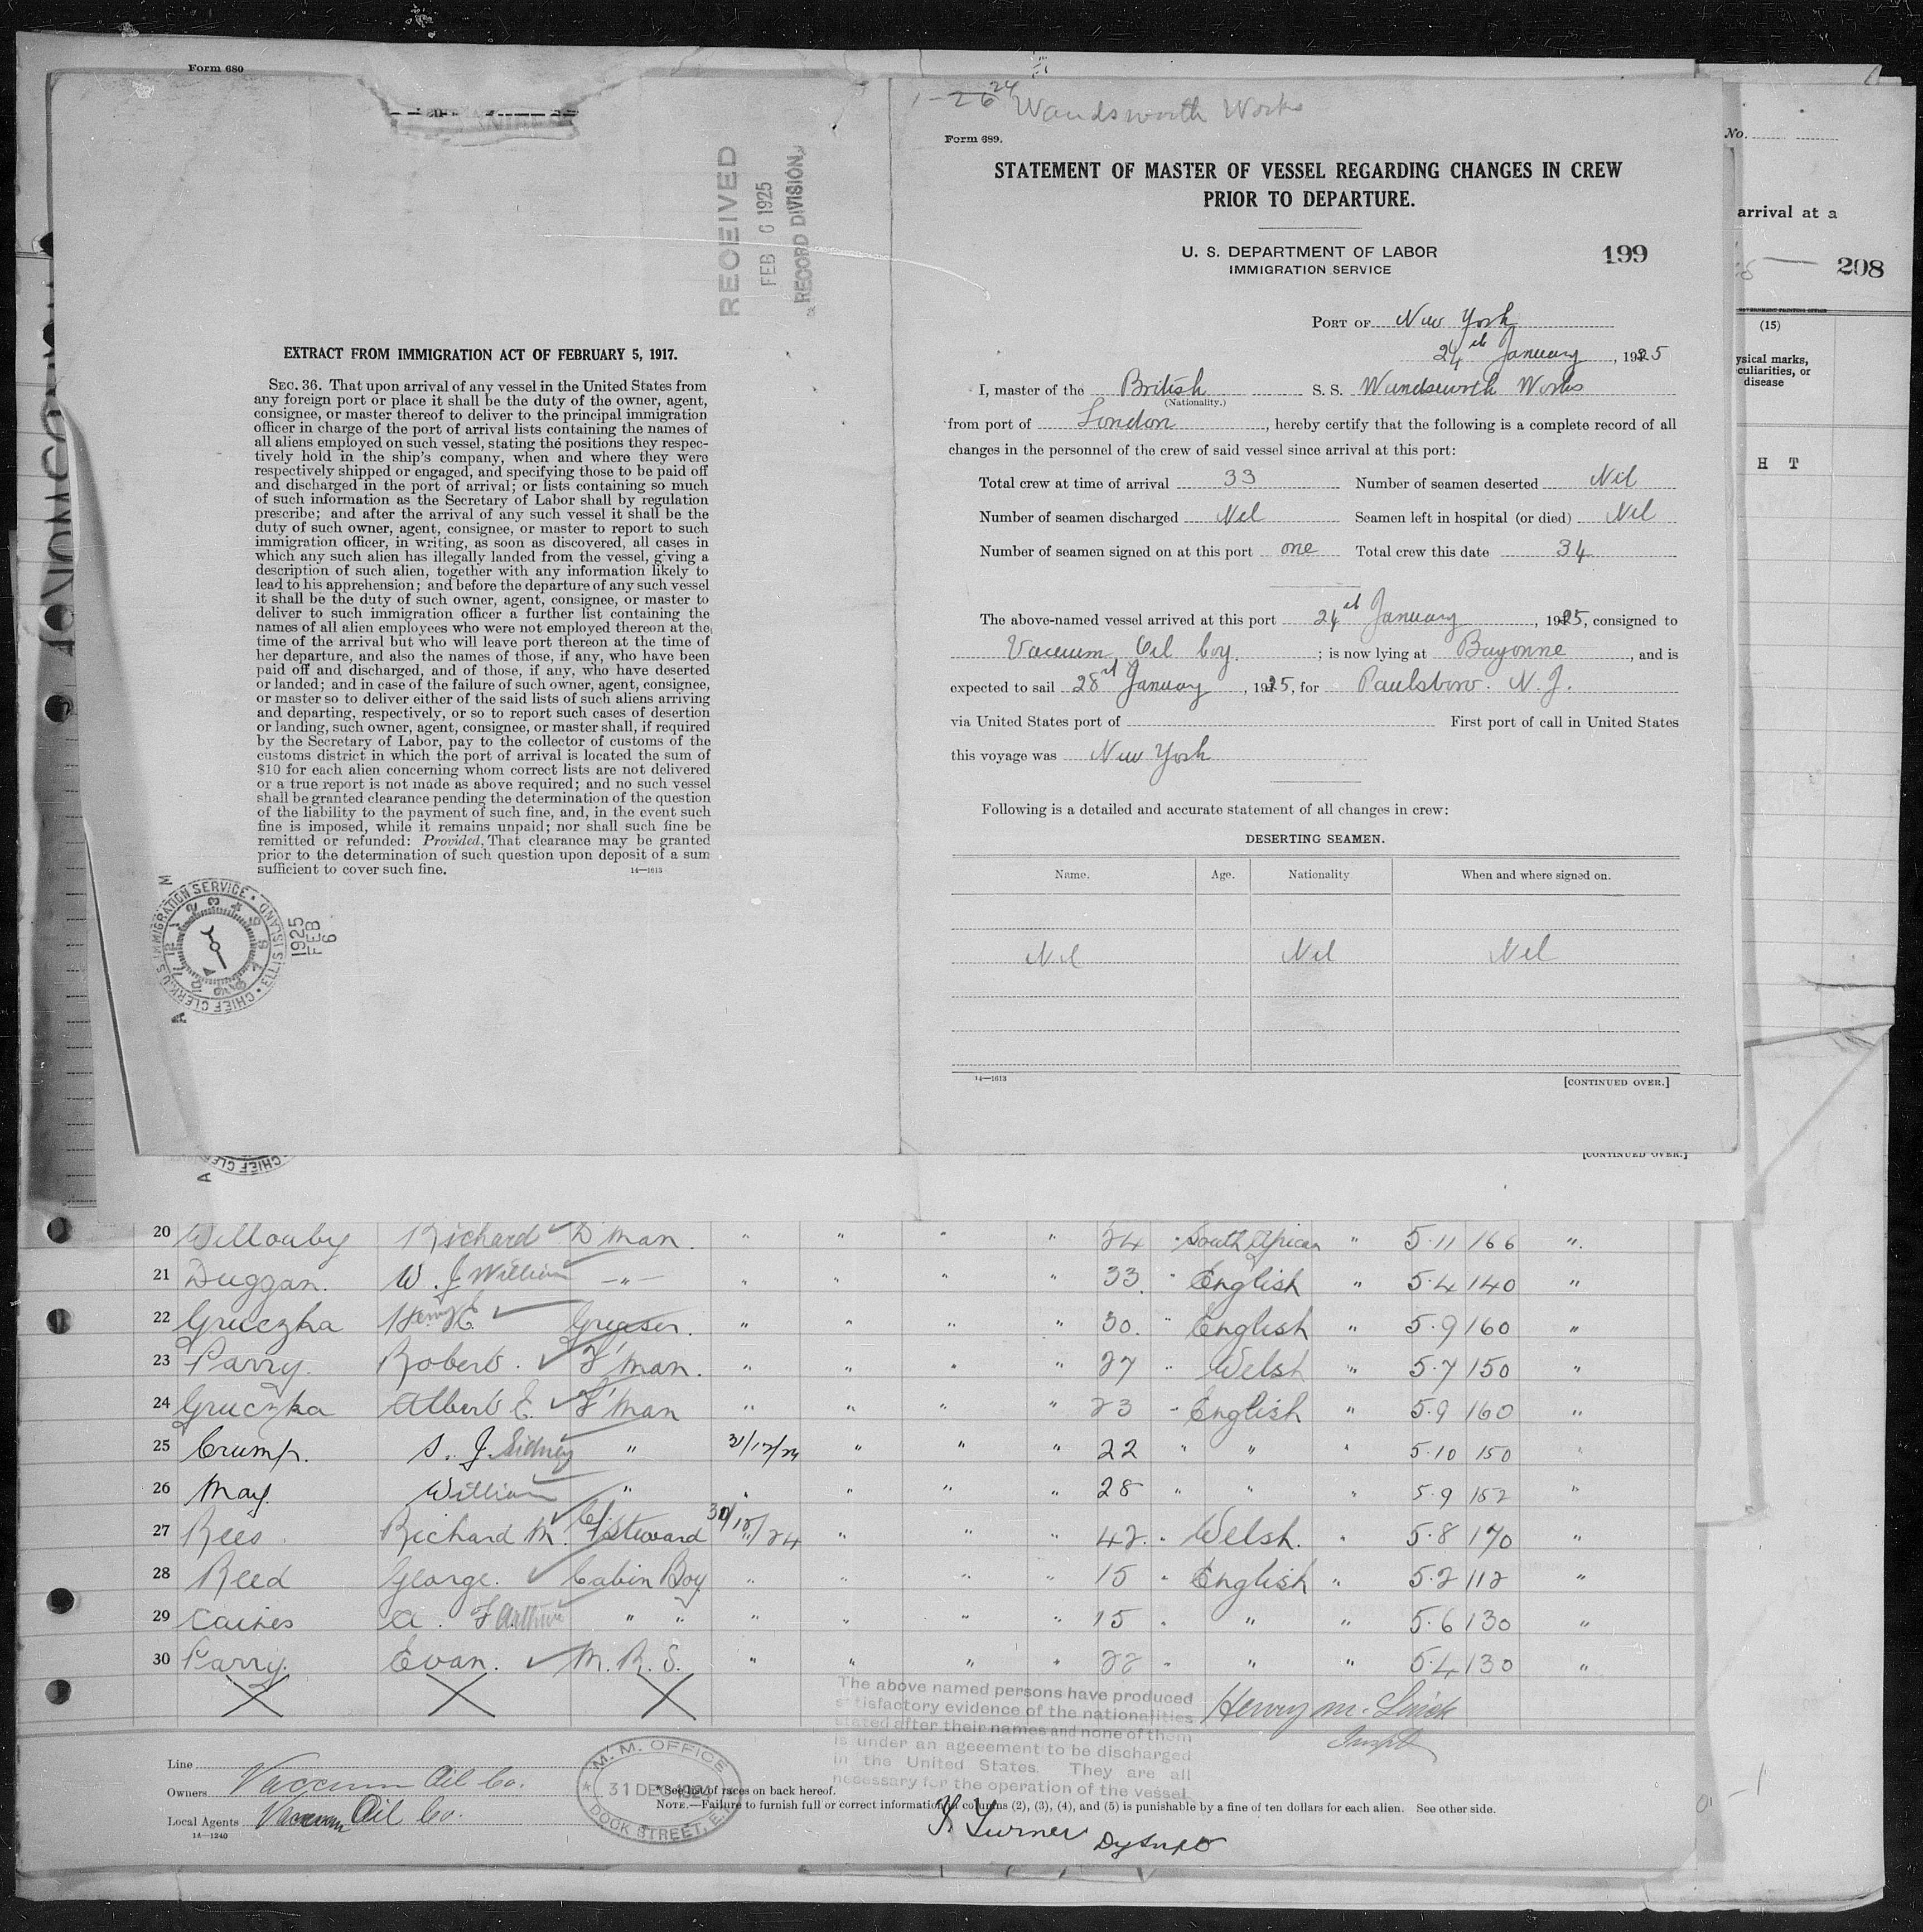 Form 680
RECEIVED
FEB 6 1925
RECORD DIVISION
EXTRACT FROM IMMIGRATION ACT OF FEBRUARY 5, 1917.
SEC. 36. That upon arrival of any vessel in the United States from
any foreign port or place it shall be the duty of the owner, agent,
consignee, or master thereof to deliver to the principal immigration
officer in charge of the port of arrival lists containing the names of
all aliens employed on such vessel, stating the positions they respec-
tively hold in the ship's company, when and where they were
respectively shipped or engaged, and specifying those to be paid off
and discharged in the port of arrival; or lists containing so much
of such information as the Secretary of Labor shall by regulation
prescribe; and after the arrival of any such vessel it shall be the
duty of such owner, agent, consignee, or master to report to such
immigration officer, in writing, as soon as discovered, all cases in
which any such alien has illegally landed from the vessel, giving a
description of such alien, together with any information likely to
lead to his apprehension; and before the departure of any such vessel
it shall be the duty of such owner, agent, consignee, or master to
deliver to such immigration officer a further list containing the
names of all alien employees who were not employed thereon at the
time of the arrival but who will leave port thereon at the time of
her departure, and also the names of those, if any, who have been
paid off and discharged, and of those, if any, who have deserted
or landed; and in case of the failure of such owner, agent, consignee,
or master so to deliver either of the said lists of such aliens arriving
and departing, respectively, or so to report such cases of desertion
or landing, such owner, agent, consignee, or master shall, if required
by the Secretary of Labor, pay to the collector of customs of the
customs district in which the port of arrival is located the sum of
$10 for each alien concerning whom correct lists are not delivered
or a true report is not made as above required; and no such vessel
shall be granted clearance pending the determination of the question
of the liability to the payment of such fine, and, in the event such
fine is imposed, while it remains unpaid; nor shall such fine be
remitted or refunded: Provided, That clearance may be granted
prior to the determination of such question upon deposit of a sum
sufficient to cover such fine.
14—1613
U.S. IMMIGRATION SERVICE • ELLIS ISLAND • CHIEF CLERK
1925
FEB
6
1-26 24 Wandsworth Works
Form 689.
STATEMENT OF MASTER OF VESSEL REGARDING CHANGES IN CREW
PRIOR TO DEPARTURE.
U. S. DEPARTMENT OF LABOR
IMMIGRATION SERVICE
199
PORT OF New York
24th January, 1925
I, master of the British S. S. Wandsworth Works
(Nationality.)
from port of London, hereby certify that the following is a complete record of all
changes in the personnel of the crew of said vessel since arrival at this port:
Total crew at time of arrival 33 Number of seamen deserted Nil
Number of seamen discharged Nil Seamen left in hospital (or died) Nil
Number of seamen signed on at this port one Total crew this date 34
The above-named vessel arrived at this port 24th January, 1925, consigned to
Vacuum Oil Coy. ; is now lying at Bayonne, and is
expected to sail 28rd January, 1925, for Paulsboro. N. J.
via United States port of First port of call in United States
this voyage was New York
Following is a detailed and accurate statement of all changes in crew:
DESERTING SEAMEN.
Name. Age. Nationality When and where signed on.
Nil Nil Nil
14—1613
[CONTINUED OVER.]
No.
arrival at a
208
(15)
ysical marks,
culiarities, or
disease
H T
CHIEF CLE
[CONTINUED OVER.]
20 Willouby Richard D'man. " " " " 24 " South African " 5.11 166 "
21 Duggan. W. J William —"— " " " " 33. " English " 5.4 140 "
22 Gruczka Henry E. Greaser. " " " " 30. " English " 5.9 160 "
23 Parry. Robert. F'man. " " " " 27 " Welsh " 5.7 150 "
24 Gruczka Albert E. F'man " " " " 23 " English " 5.9 160 "
25 Crump. S. J Sidney " 31/12/24 " " " 22 " " " 5.10 150 "
26 May. William " " " " " 28 " " " 5.9 152 "
27 Rees Richard M. Ch Steward 30/12/24 " " " 42 " Welsh. " 5.8 170 "
28 Reed George. Cabin Boy " " " " 15 " English " 5.2 112 "
29 Caines A. F Arthur " " " " " " 15 " " " 5.6 130 "
30 Parry. Evan. M. R. S. " " " " 22 " " " 5.4 130 "
The above named persons have produced
satisfactory evidence of the nationalities
stated after their names and none of them
is under an ageeement to be discharged
in the United States. They are all
necessary for the operation of the vessel
Line
Owners Vaccum Oil Co.
Local Agents Vacuum Oil Co.
14—1240
M. M. OFFICE
31 DEC 1924
DOCK STREET, E.
* See list of races on back hereof.
NOTE.—Failure to furnish full or correct information in columns (2), (3), (4), and (5) is punishable by a fine of ten dollars for each alien. See other side.
Turner